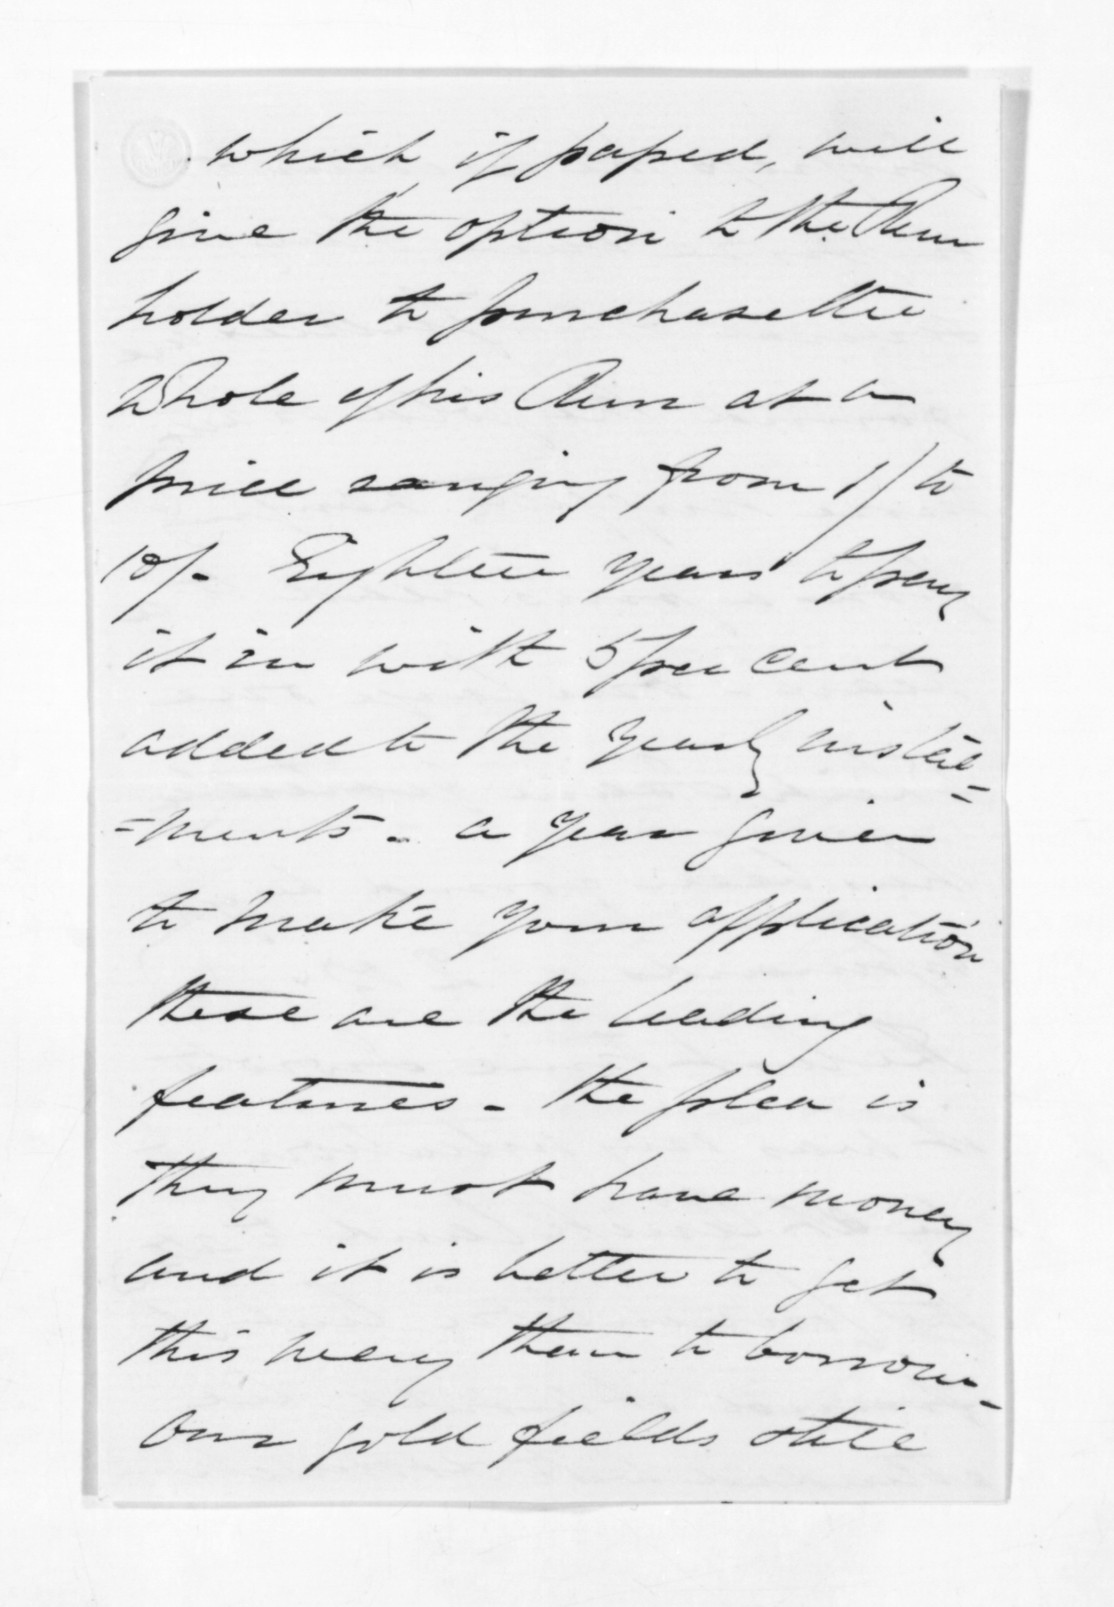 which if passed, will
give the option to the Run
holder to purchase the
whole of his Run at a
price ranging from 1/ to
10/- Eighteen years to pay
it in with 5 per cent
added to the yearly instal=
=ments - a year given
to make your application
these are the leading
features - the plea is
they must have money
and it is better to get
this way than to borrow -
our gold fields still